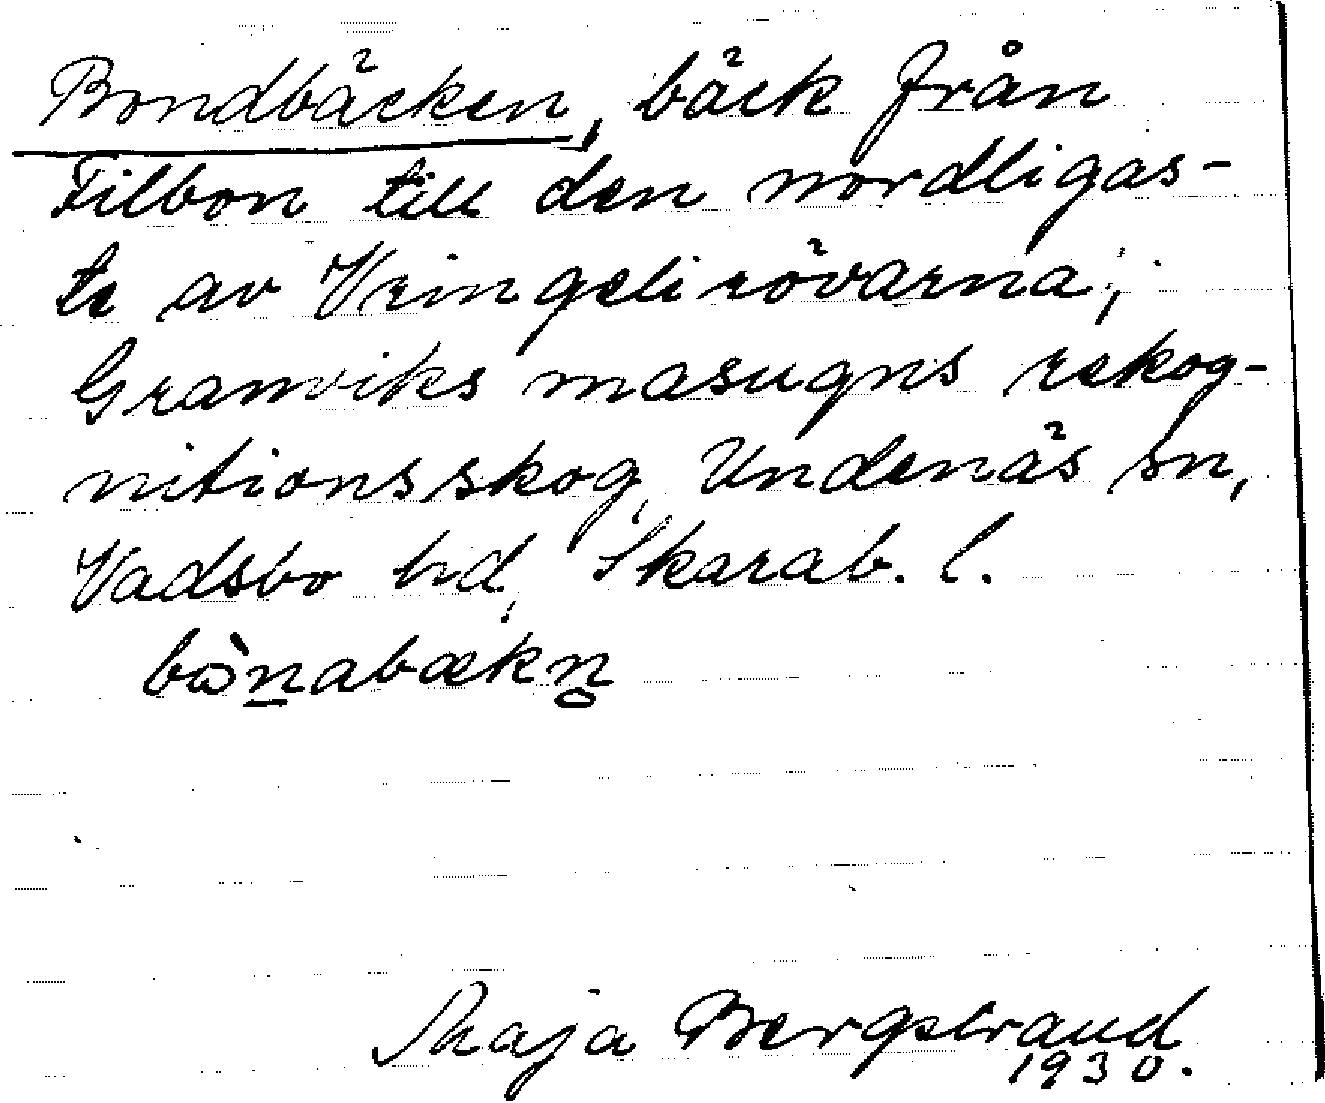 Bondbäcken, bäck från
Filbon till den nordligas-
te av Vringelirövarna;
Granviks masugns rekog-
nitionsskog, Undenäs sn,
Vadsbo hd, Skarab. l.
bɷ̀n̲abækn̥
Maja Bergstrand
1930.